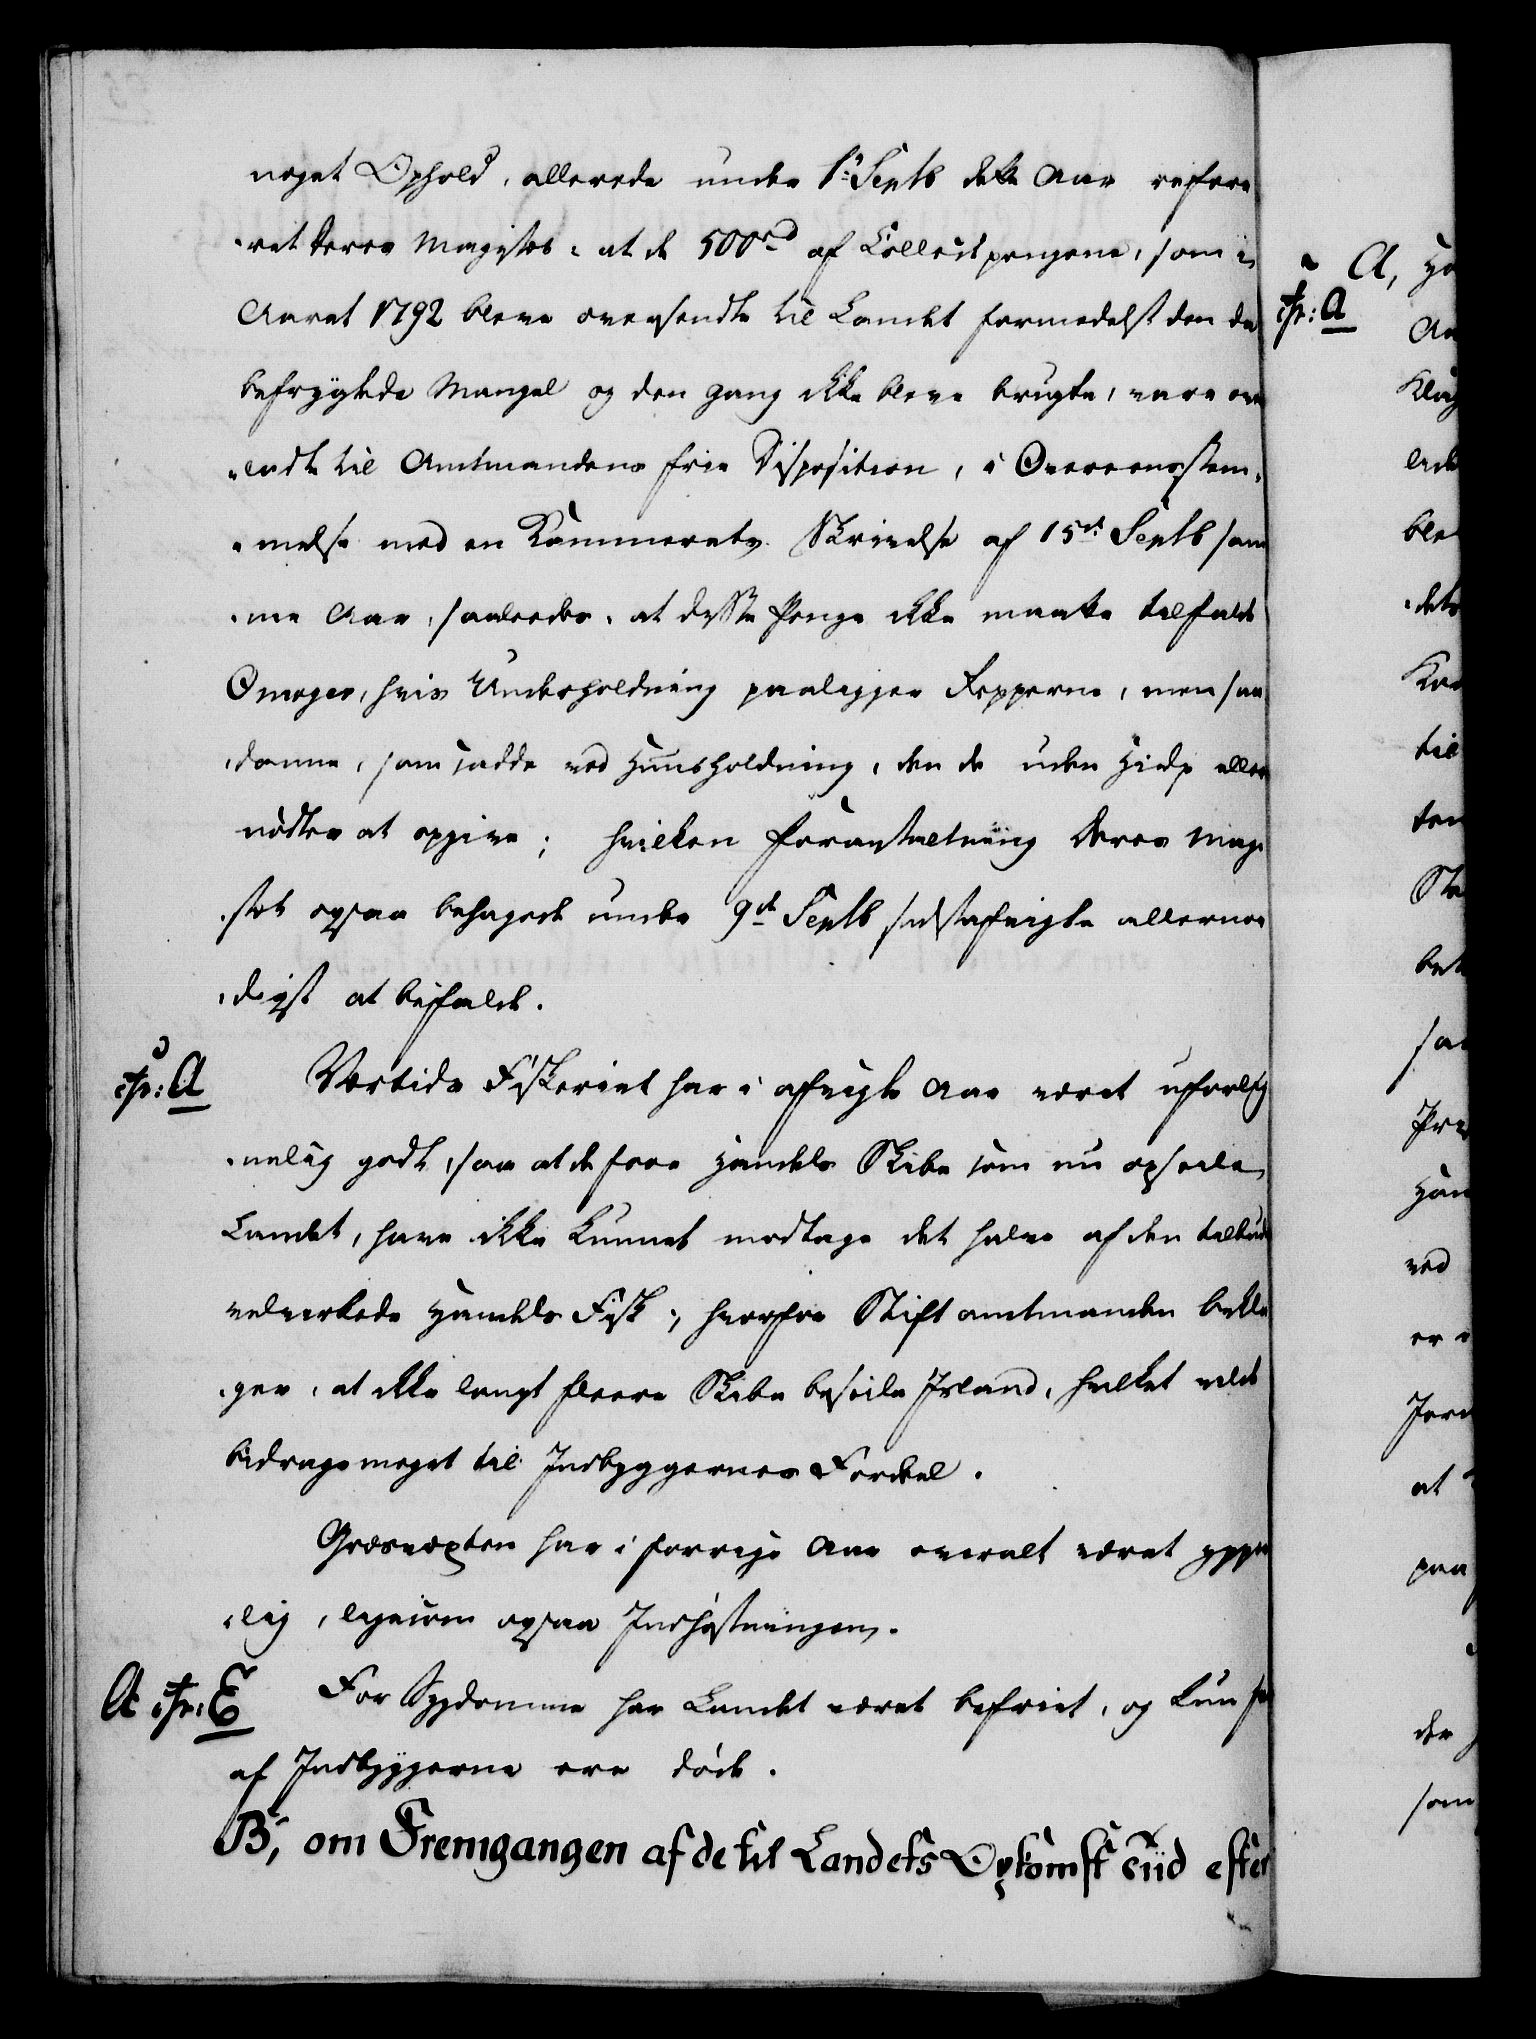 noget Ophold, allerede under 1ste Septb dette Aar refere
ret Deres Majestæt, at de 500 rd af Collectpengene, som i
Aaret 1792 bleve oversendte til Landet formedelst den da
befrygtede Mangel og den gang ikke bleve brugte, vare over
ladte til Amtmandens frie Disposition, i Overeensstem-
melse med en Kammerets Skrivelse af 15de Septb sam
me Aar, saaledes, at disse Penge ikke maatte tilfalde
Omager, hvis Underholdning paaligger Repperne, men saa
danne, som sadde ved Huusholdning, den de uden Hielp eller
nødtes at opgive; hvilken Foranstaltning Deres Maje
stæt ogsaa behagede under 9de Septb sidstafvigte allernaa
digst at bifalde.
cfr: A Vortids Fiskeriet har i afvigte Aar været uforlig
nelig godt, saa at de faae Handels Skibe som nu opseile
Landet, have ikke kunnet modtage det halve af den tilbudne
velvirkede Handels Fisk; hvorfor Stiftamtmanden bekla
ger, at ikke langt fleere Skibe beseile Island, hvilket vilde
bidrage meget til Indbyggernes Fordeel.
Græsvæxten har i forrige Aar overalt været ypper
lig, ligesom ogsaa Indhøstningen.
A cfr: E For Sygdomme har Landet været befriet, og kun faa
af Indbyggerne ere døde.
B, om Fremgangen af de til Landets Opkomst siid efter
A,
cfr: A
til
ved
at
paa
der
som